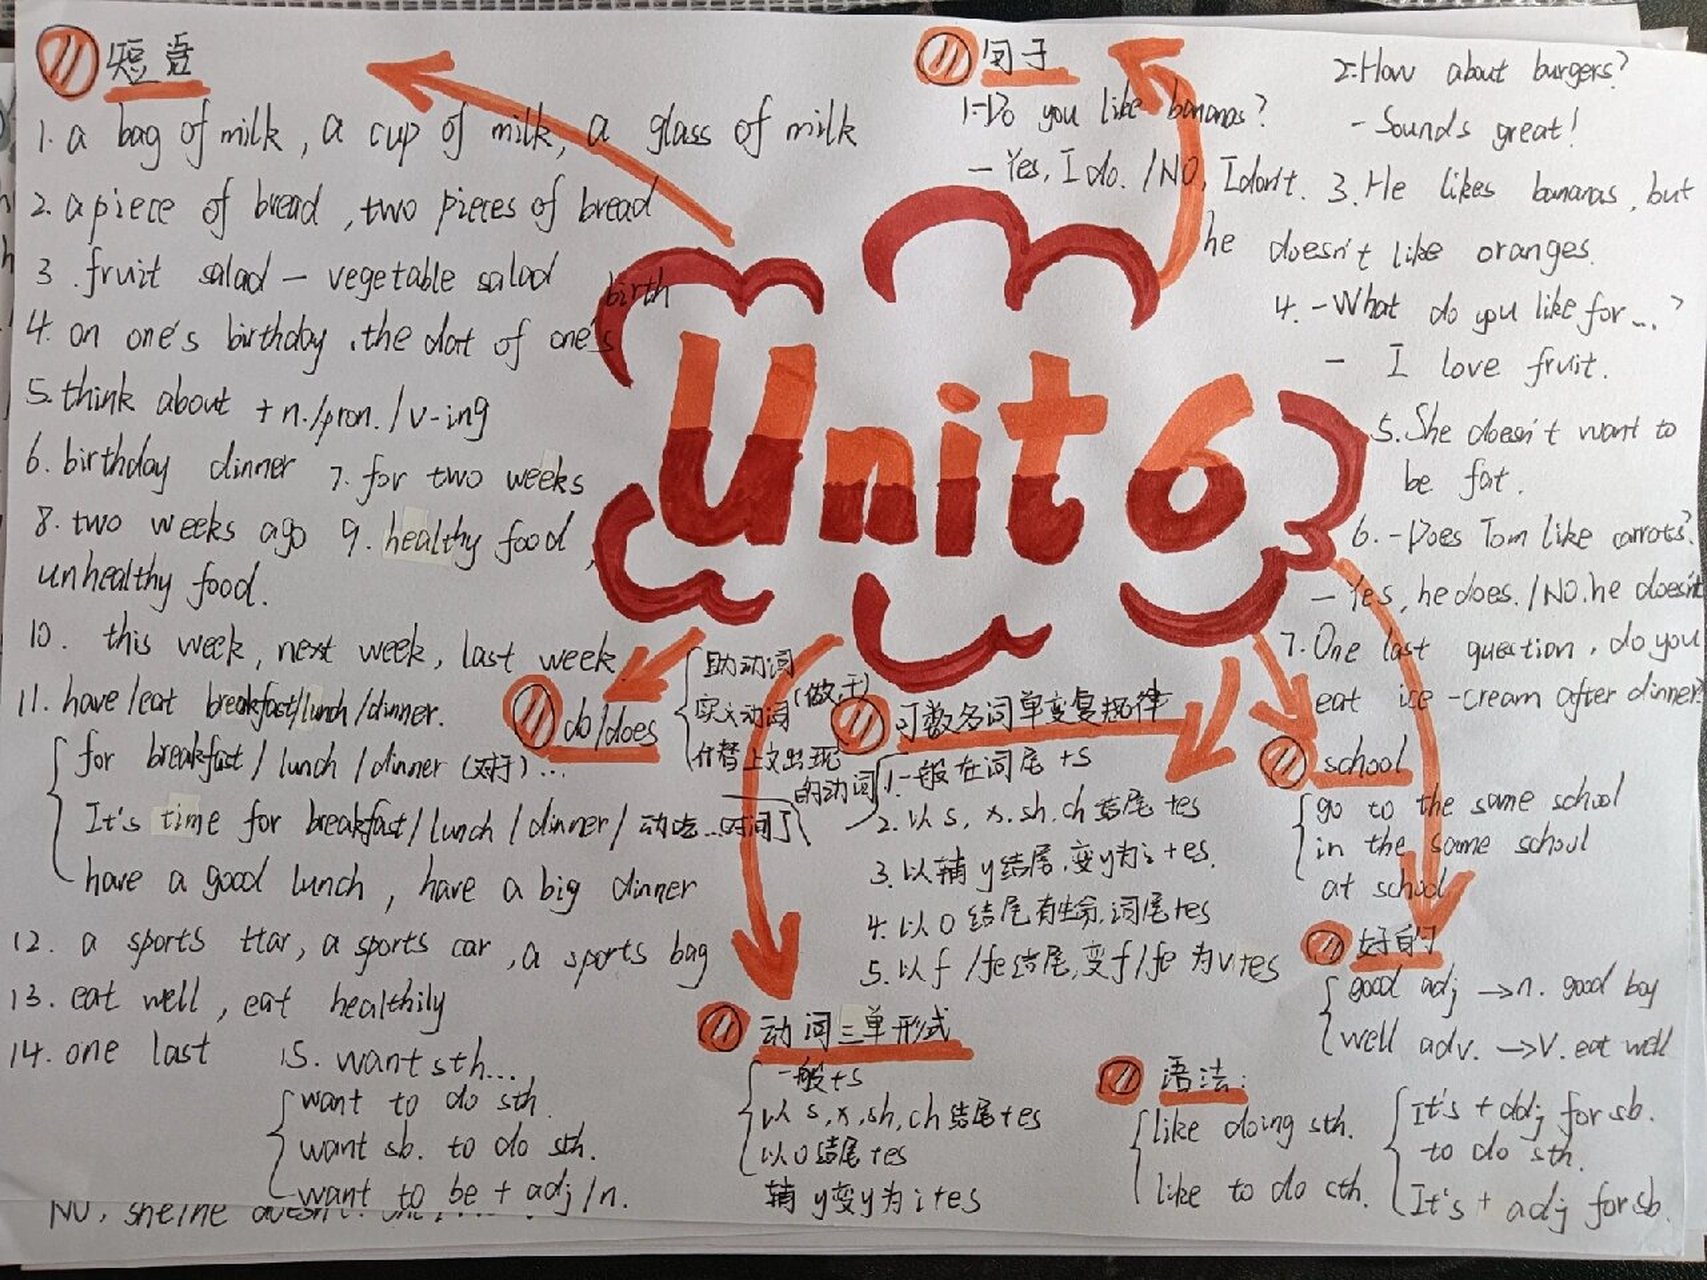 短语
1. a bag of milk, a cup of milk, a glass of milk
2. a piece of bread, two pieces of bread
3. fruit salad — vegetable salad
birth
4. on one's birthday, the dat of one's
5. think about + n./pron./v-ing
6. birthday dinner 7. for two weeks
8. two weeks ago 9. healthy food,
unhealthy food.
10. this week, next week, last week
11. have/eat breakfast/lunch/dinner.
for breakfast/lunch/dinner (对于)...
It's time for breakfast/lunch/dinner/ ...时间了
have a good lunch, have a big dinner
12. a sports ttar, a sports car, a sports bag
13. eat well, eat healthily
14. one last 15. want sth...
want to do sth.
want sb. to do sth.
want to be + adj/n.
Unit 6
句子
1.-Do you like bananas?
- Yes, I do. /NO, I don't.
2.-How about burgers?
- Sounds great!
3. He likes bananas, but
he doesn't like oranges.
4. -What do you like for...?
- I love fruit.
5. She doesn't want to
be fat.
6. -Does Tom like carrots?
- Yes, he does. /NO. he doesn't
7. One last question, do you
eat ice-cream after dinner?
do/does
助动词
实义动词 (做,干)
代替上文出现
的动词
可数名词单变复规律
1. 一般在词尾 +s
2. 以 s, x, sh, ch 结尾 +es
3. 以辅 y 结尾, 变 y 为 i +es.
4. 以 o 结尾有生命, 词尾 +es
5. 以 f /fe 结尾, 变 f/fe 为 v+es
school
go to the same school
in the same school
at school
好的
good adj → n. good boy
well adv. → v. eat well
动词三单形式
一般 +s
以 s, x, sh, ch 结尾 +es
以 o 结尾 +es
辅 y 变 y 为 i +es
语法:
like doing sth.
like to do sth.
It's + adj for sb.
to do sth.
It's + adj for sb.